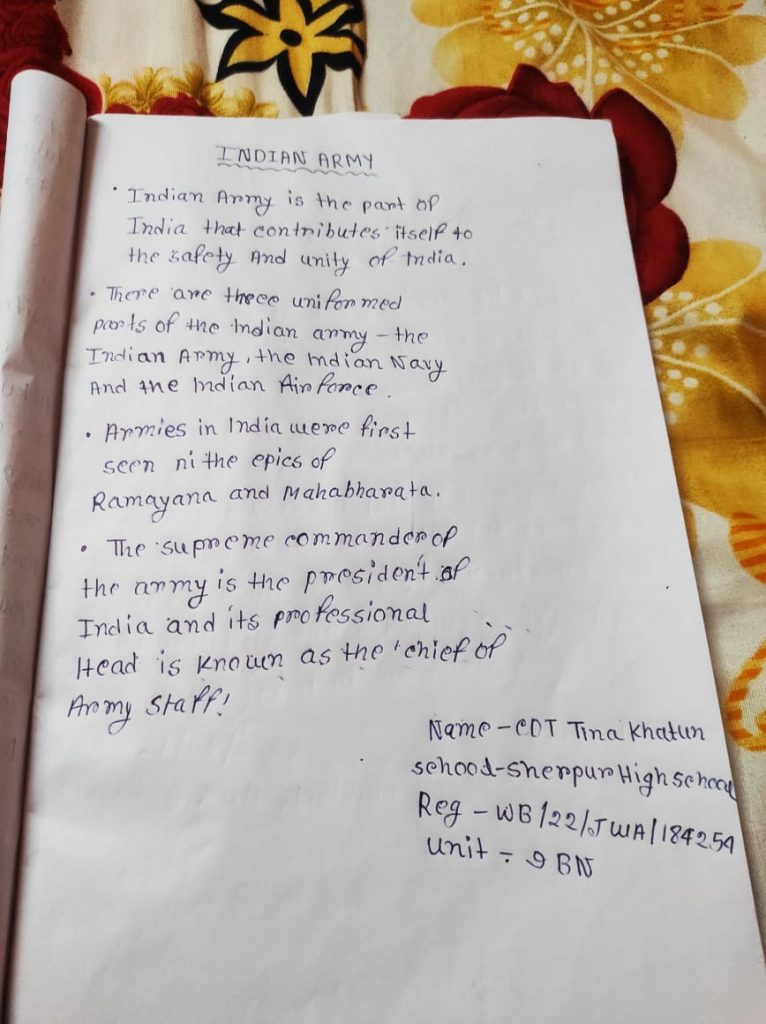 INDIAN ARMY
• Indian Army is the part of
India that contributes itself to
the safety And unity of India.
• There are three uniformed
parts of the Indian army - the
Indian Army, the Indian Navy
And the Indian Air force.
• Armies in India were first
seen ni the epics of
Ramayana and Mahabharata.
• The supreme commander of
the army is the president of
India and its professional
Head is known as the 'chief of
Army Staff!
Name - CDT Tina Khatun
school - Sherpur High school
Reg - WB/22/JWA/184254
Unit ÷ 9 BN